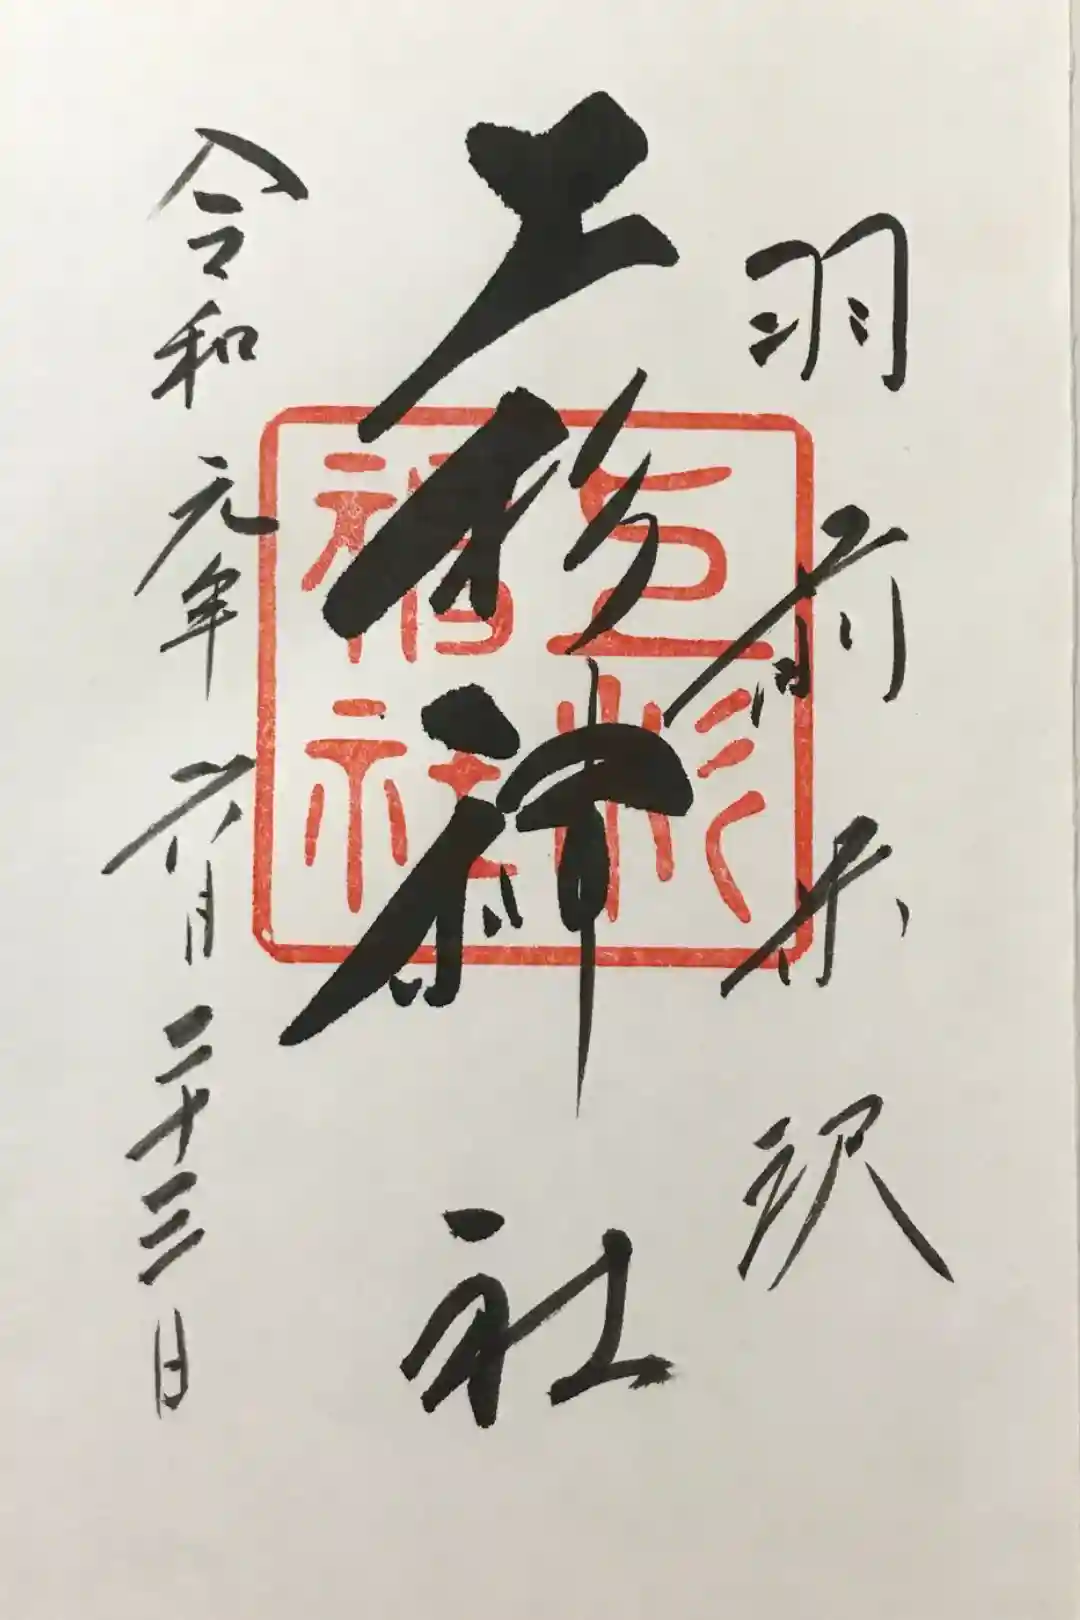 羽前米沢
上杉神社
令和元年六月二十三日
上杉
神社